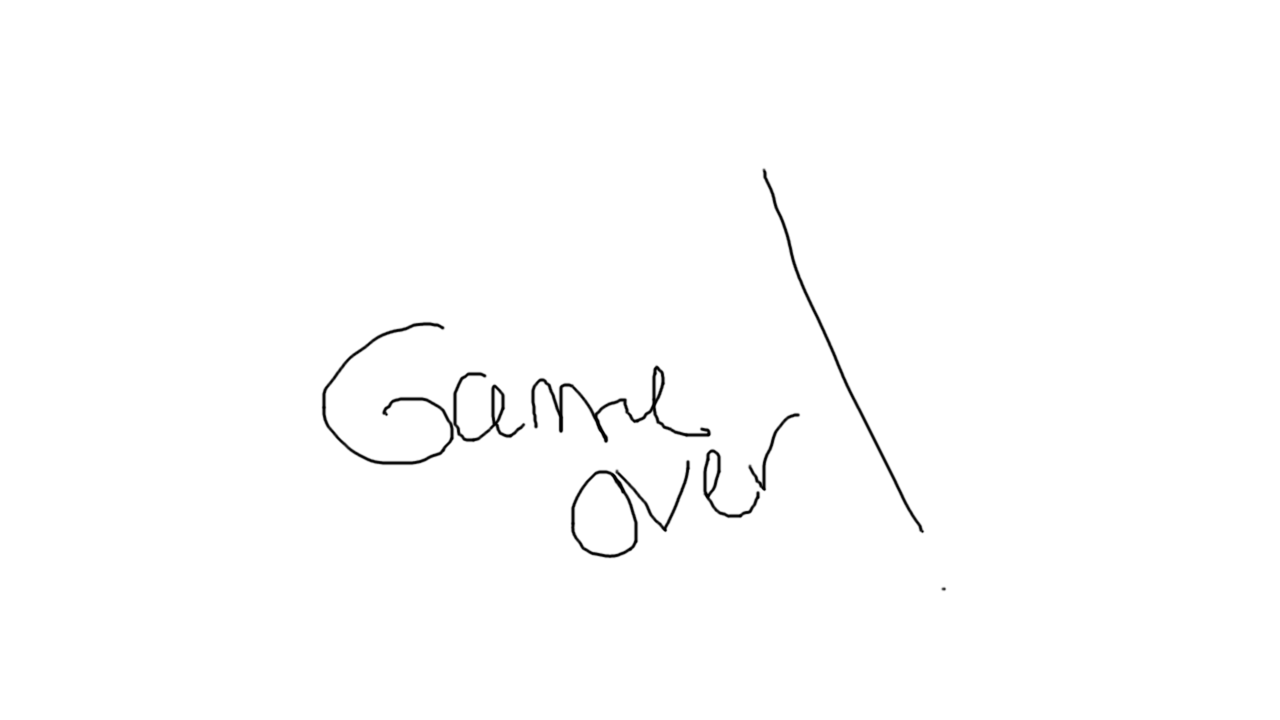 Game
over!